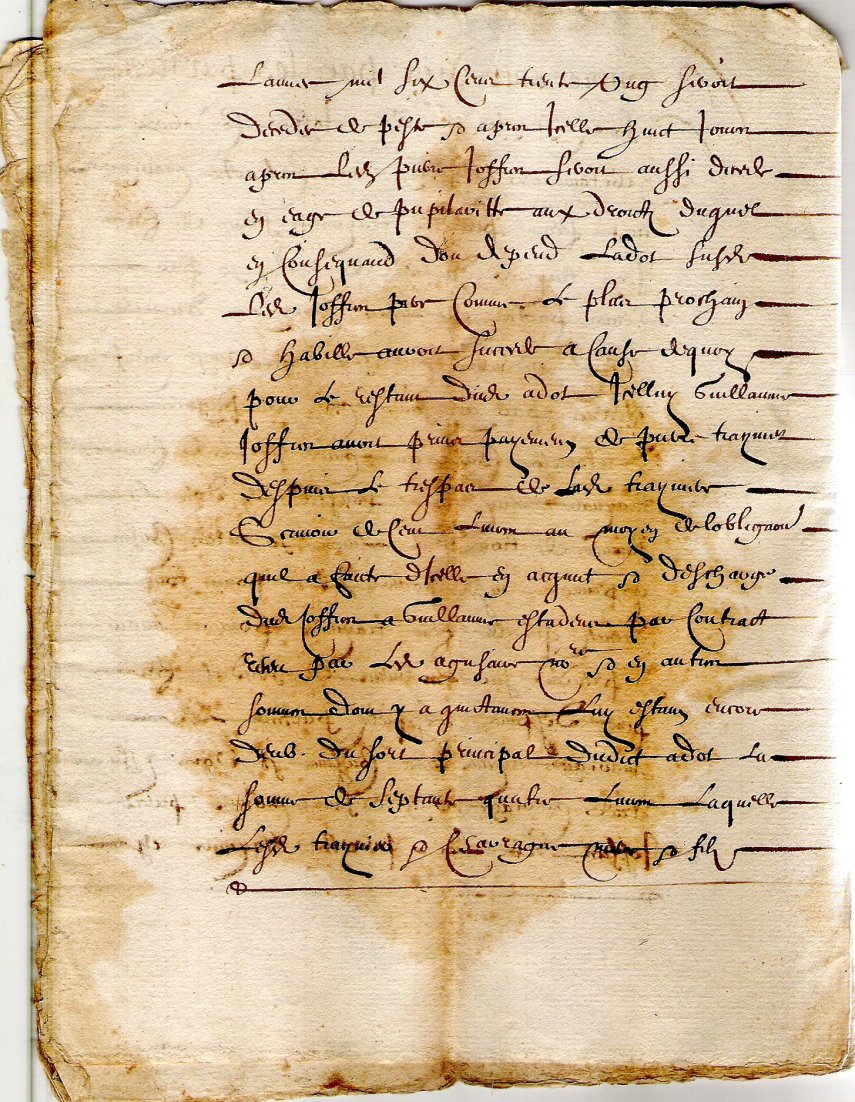 Lannee mil six Cens trente Ung seroit
decedée de peste & apres Icelle huict Jours
apres Led pierre Joffren seroit aussi decedé
en eage de pupilaritte aux droictz duquel
en Consequand don depend Ladot susde
Led Joffren pere Comme le plus prochain
& habille auroit succede a Cause dequoy
pour le restant dud adot Icelluy Guillaume
Joffren auroit prins payement de pierre traynier
despuis le trespas de Lade trayniere
de Cent Livres au moyen de lobliga͠on
quil a faicte dIcelle en acquit & descharge
dud Joffren a Guillaume estadens par Contract
receu par Led not.re & en autres
sommes dont y a quictances Luy estant encore
deub du sort principal dudict adot La
somme de Septante quatre Livres Laquelle
Lesd traynier & mere & filz